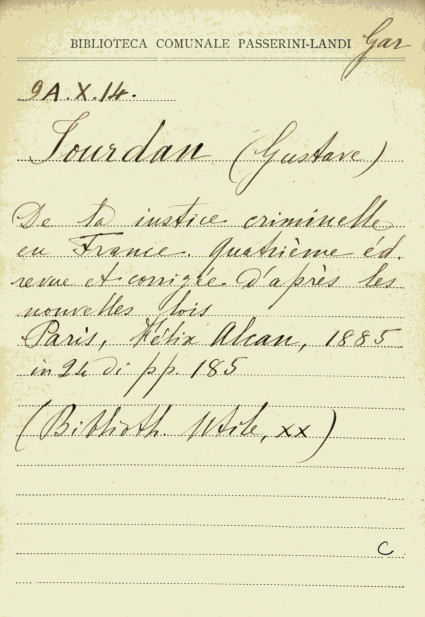 BIBLIOTECA COMUNALE PASSERINI-LANDI Gar
9A.X.14.
Jourdan (Gustave)
De la justice criminelle
en France. Quatrième éd.
revue et corrigée d'après les
nouvelles lois
Paris, Félix Alcan, 1885
in 24 di pp. 185
(Biblioth. Utile, XX)
C